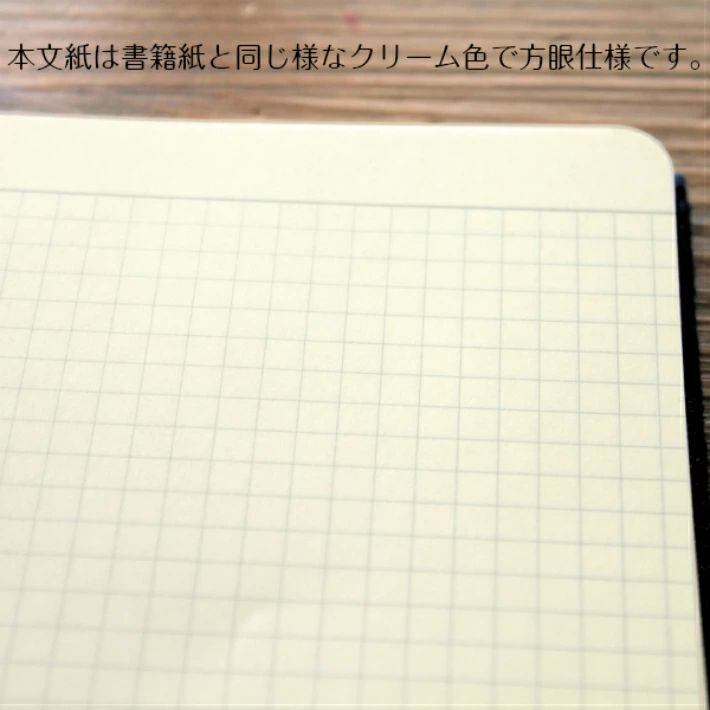 本文紙は書籍紙と同じ様なクリーム色で方眼仕様です。